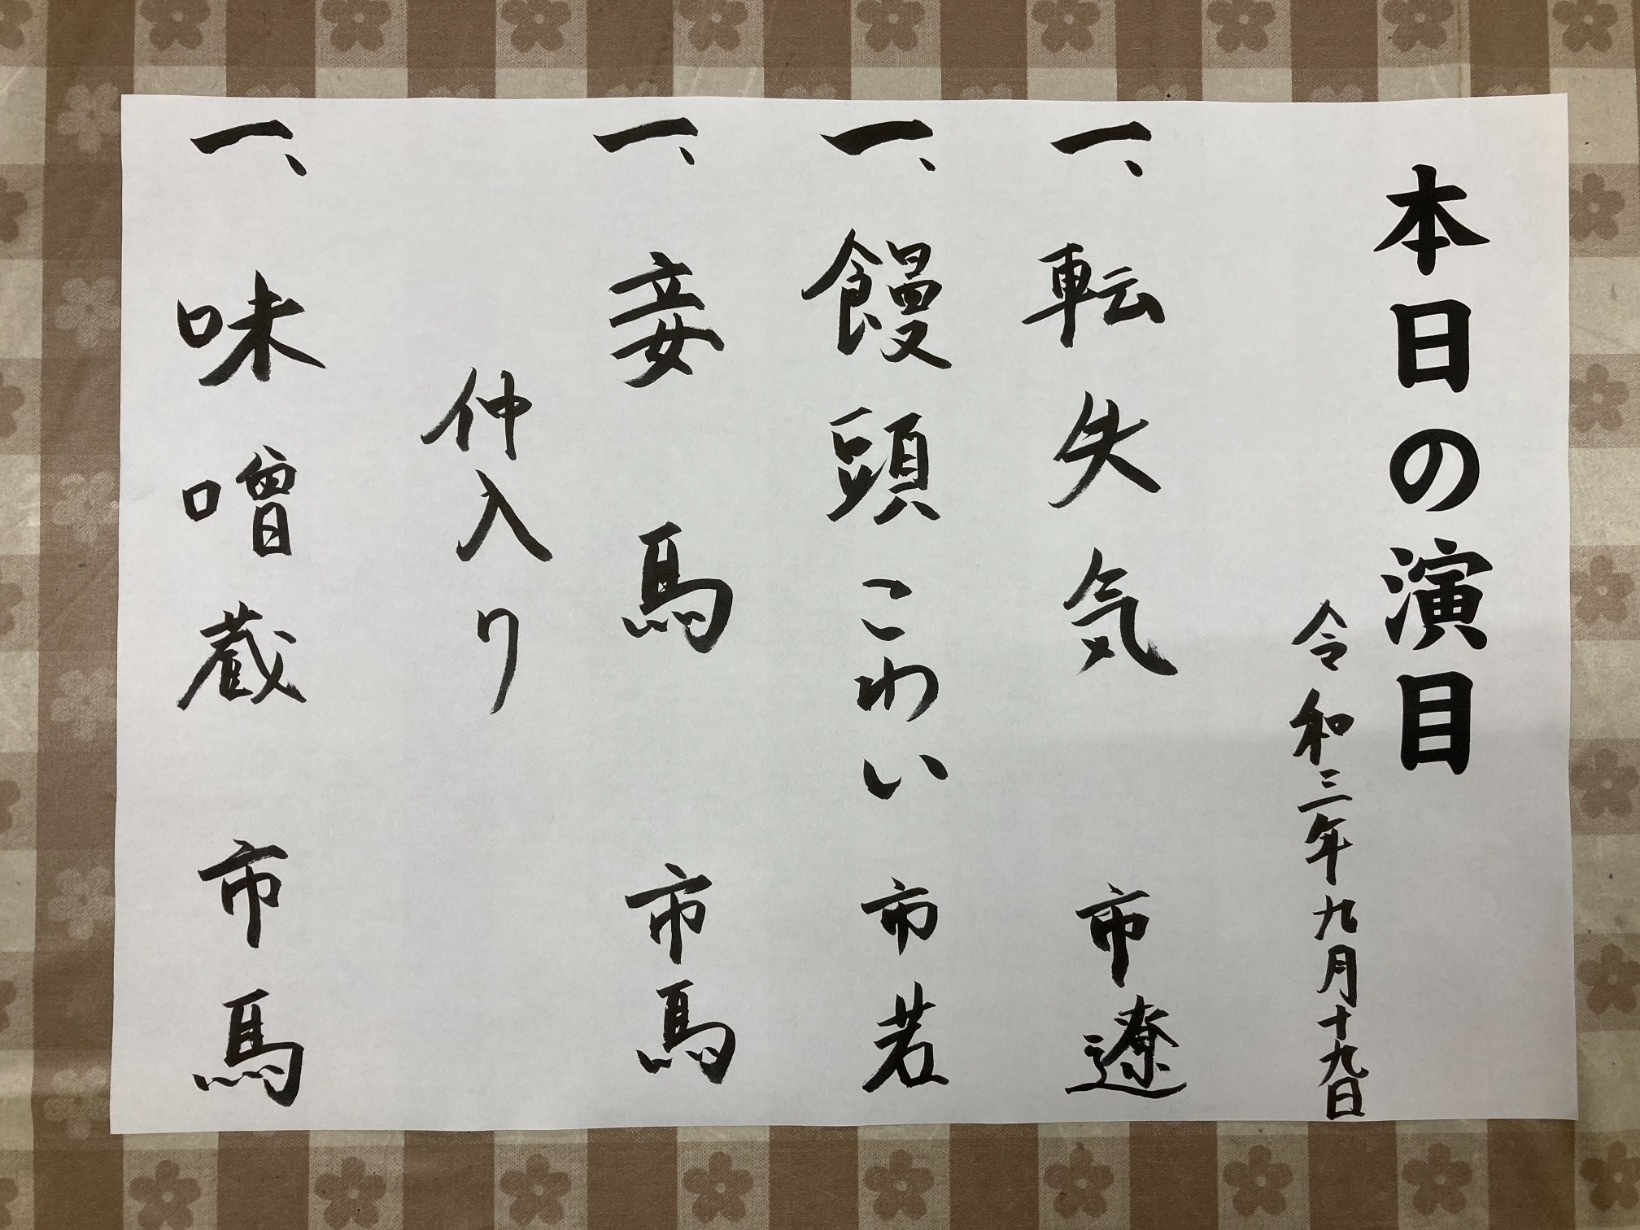 本日の演目
令和三年九月十九日
一、転失気 市遼
一、饅頭こわい 市若
一、妾馬 市馬
仲入り
一、味噌蔵 市馬